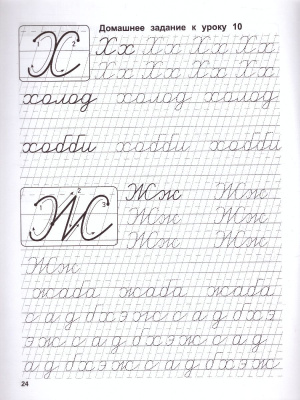 Домашнее задание к уроку 10
1 2 Хх Хх Хх Хх Хх
Хх Хх Хх Хх Хх
холод холод холод
хобби хобби хобби
1 2 3 Жж Жж
Жж Жж
Жж Жж
Жж
жаба жаба жаба
с а д б х э ж с с а д б х э
э ж с с а д б х э ж с с а д
а д б х э ж с с а д б х э ж
24